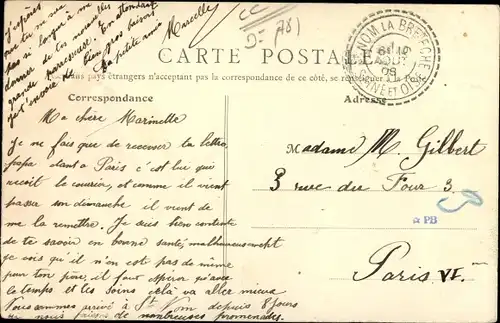 J'espère
que tu ne seras
pas si longue à me
donner de tes nouvelles
grande paresseuse. En attendant
je t'envoie de bien gros baisers
Ta petite amie
Marcelle
CC
D-(78)
CARTE POSTALE
pays étrangers n'acceptant pas la correspondance de ce côté, se renseigner à la Poste
ST-NOM LA BRETECHE
AOUT
08
SEINE ET OISE
Correspondance
Adresse
Ma chère Marinette
Je ne fais que de recevoir ta lettre,
Papa étant à Paris c'est lui qui
reçoit le courrier, et comme il vient
passer son dimanche il vient de
me la remettre. Je suis bien contente
de te savoir en bonne santé, malheureusement
je vois qu'il n'en est pas de même
pour ton père, il faut espérer qu'avec
le temps et tes soins cela va aller mieux
Nous sommes arrivé à St Nom depuis 8 jours
nous faisons de nombreuses promenades.
Madame M. Gilbert
3 rue du Four 3
PB
Paris VI.